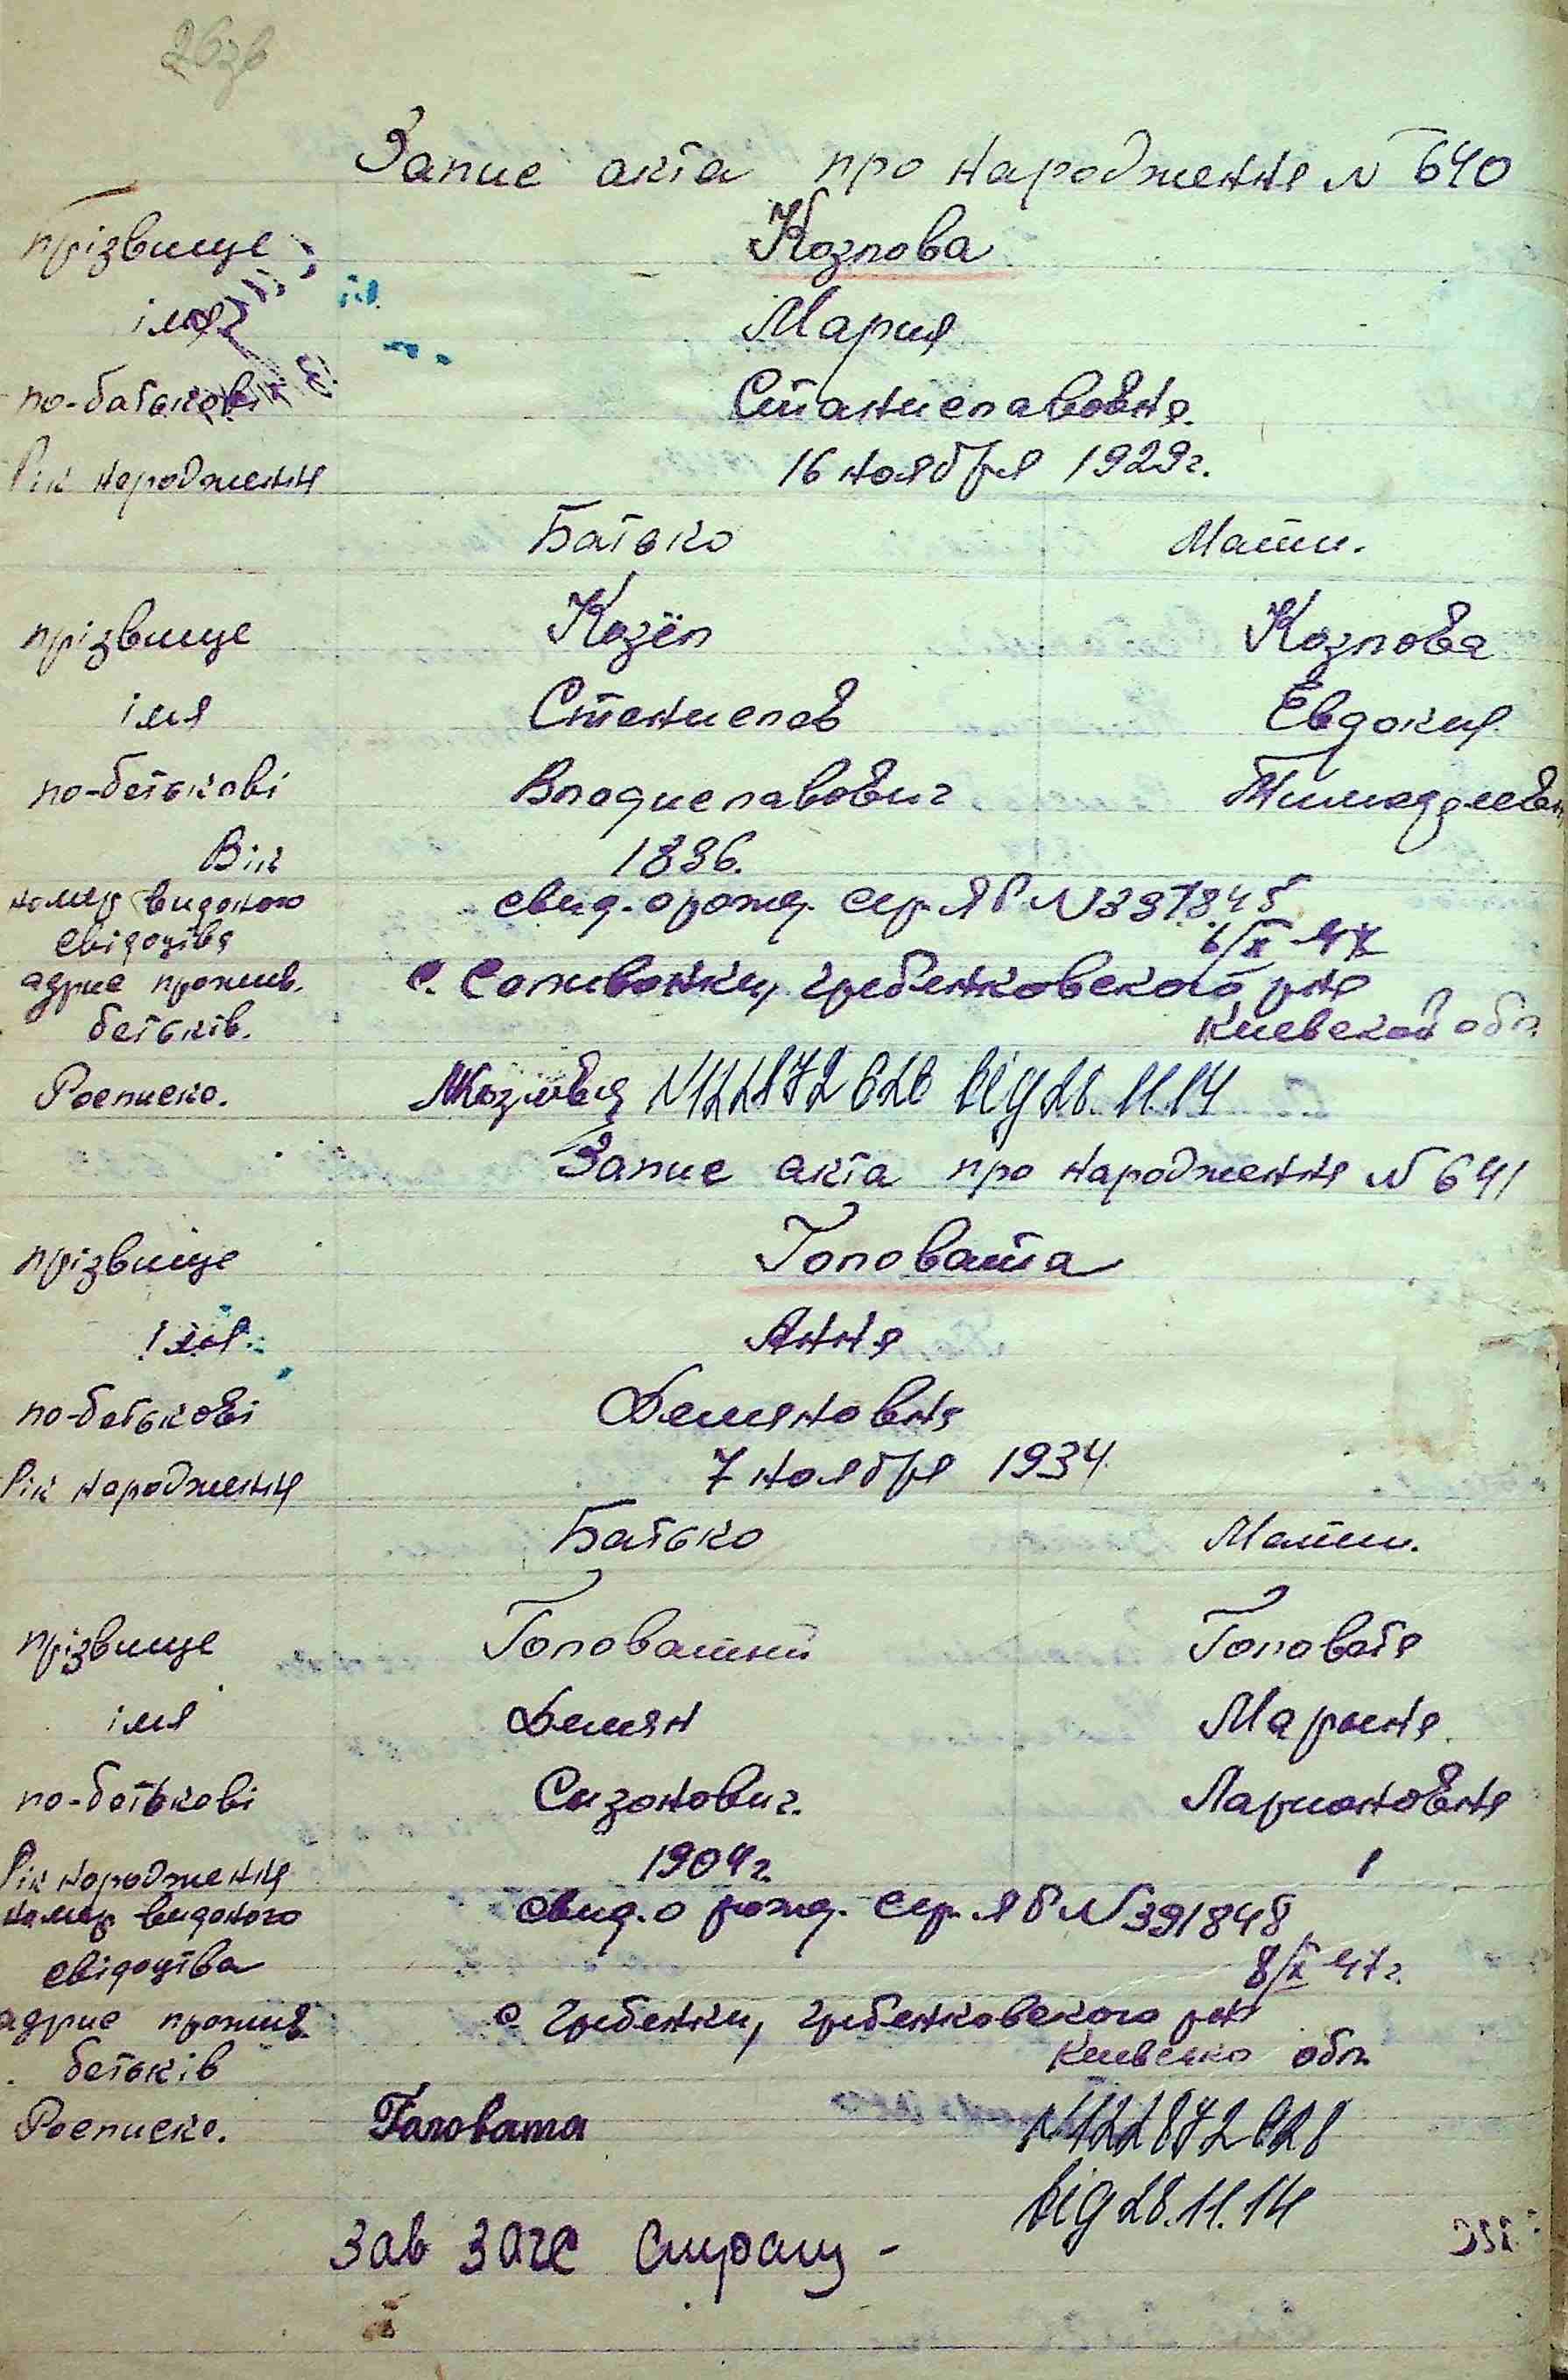 26зв
Запис акта про народження N 640
прізвище Козлова
імя Мария
по-батькові Станиславовна.
Рік народження 16 ноября 1929г.
Батько Мати.
прізвище Козёл Козлова
імя Станислав Евдокия
по-батькові Владиславович
Вік 1896.
номер виданого свид. о рожд. сер. ЯБ N
свідоцтва
адрис прожив. с. Саливонки, Гребенковского рна
батьків. Киевской обл
Росписка. від 28.11.14
Запис акта про народження N 641
прізвище Головата
імя Анна
по-батькові Демяновна
Рік народження 7 ноября 1934
Батько Мати.
прізвище Головатий Головата
імя Демян Марина.
по-батькові Сазонович. Ларионовна
Рік народження 1904г.
номер виданого свид. о рожд. сер. ЯБ N 391848
свідоцтва 8/X 47г.
адрис прожив. с Гребенки, Гребенковского рна
батьків Киевско обл.
Росписка. Головата
від 28.11.14
Зав ЗАГС